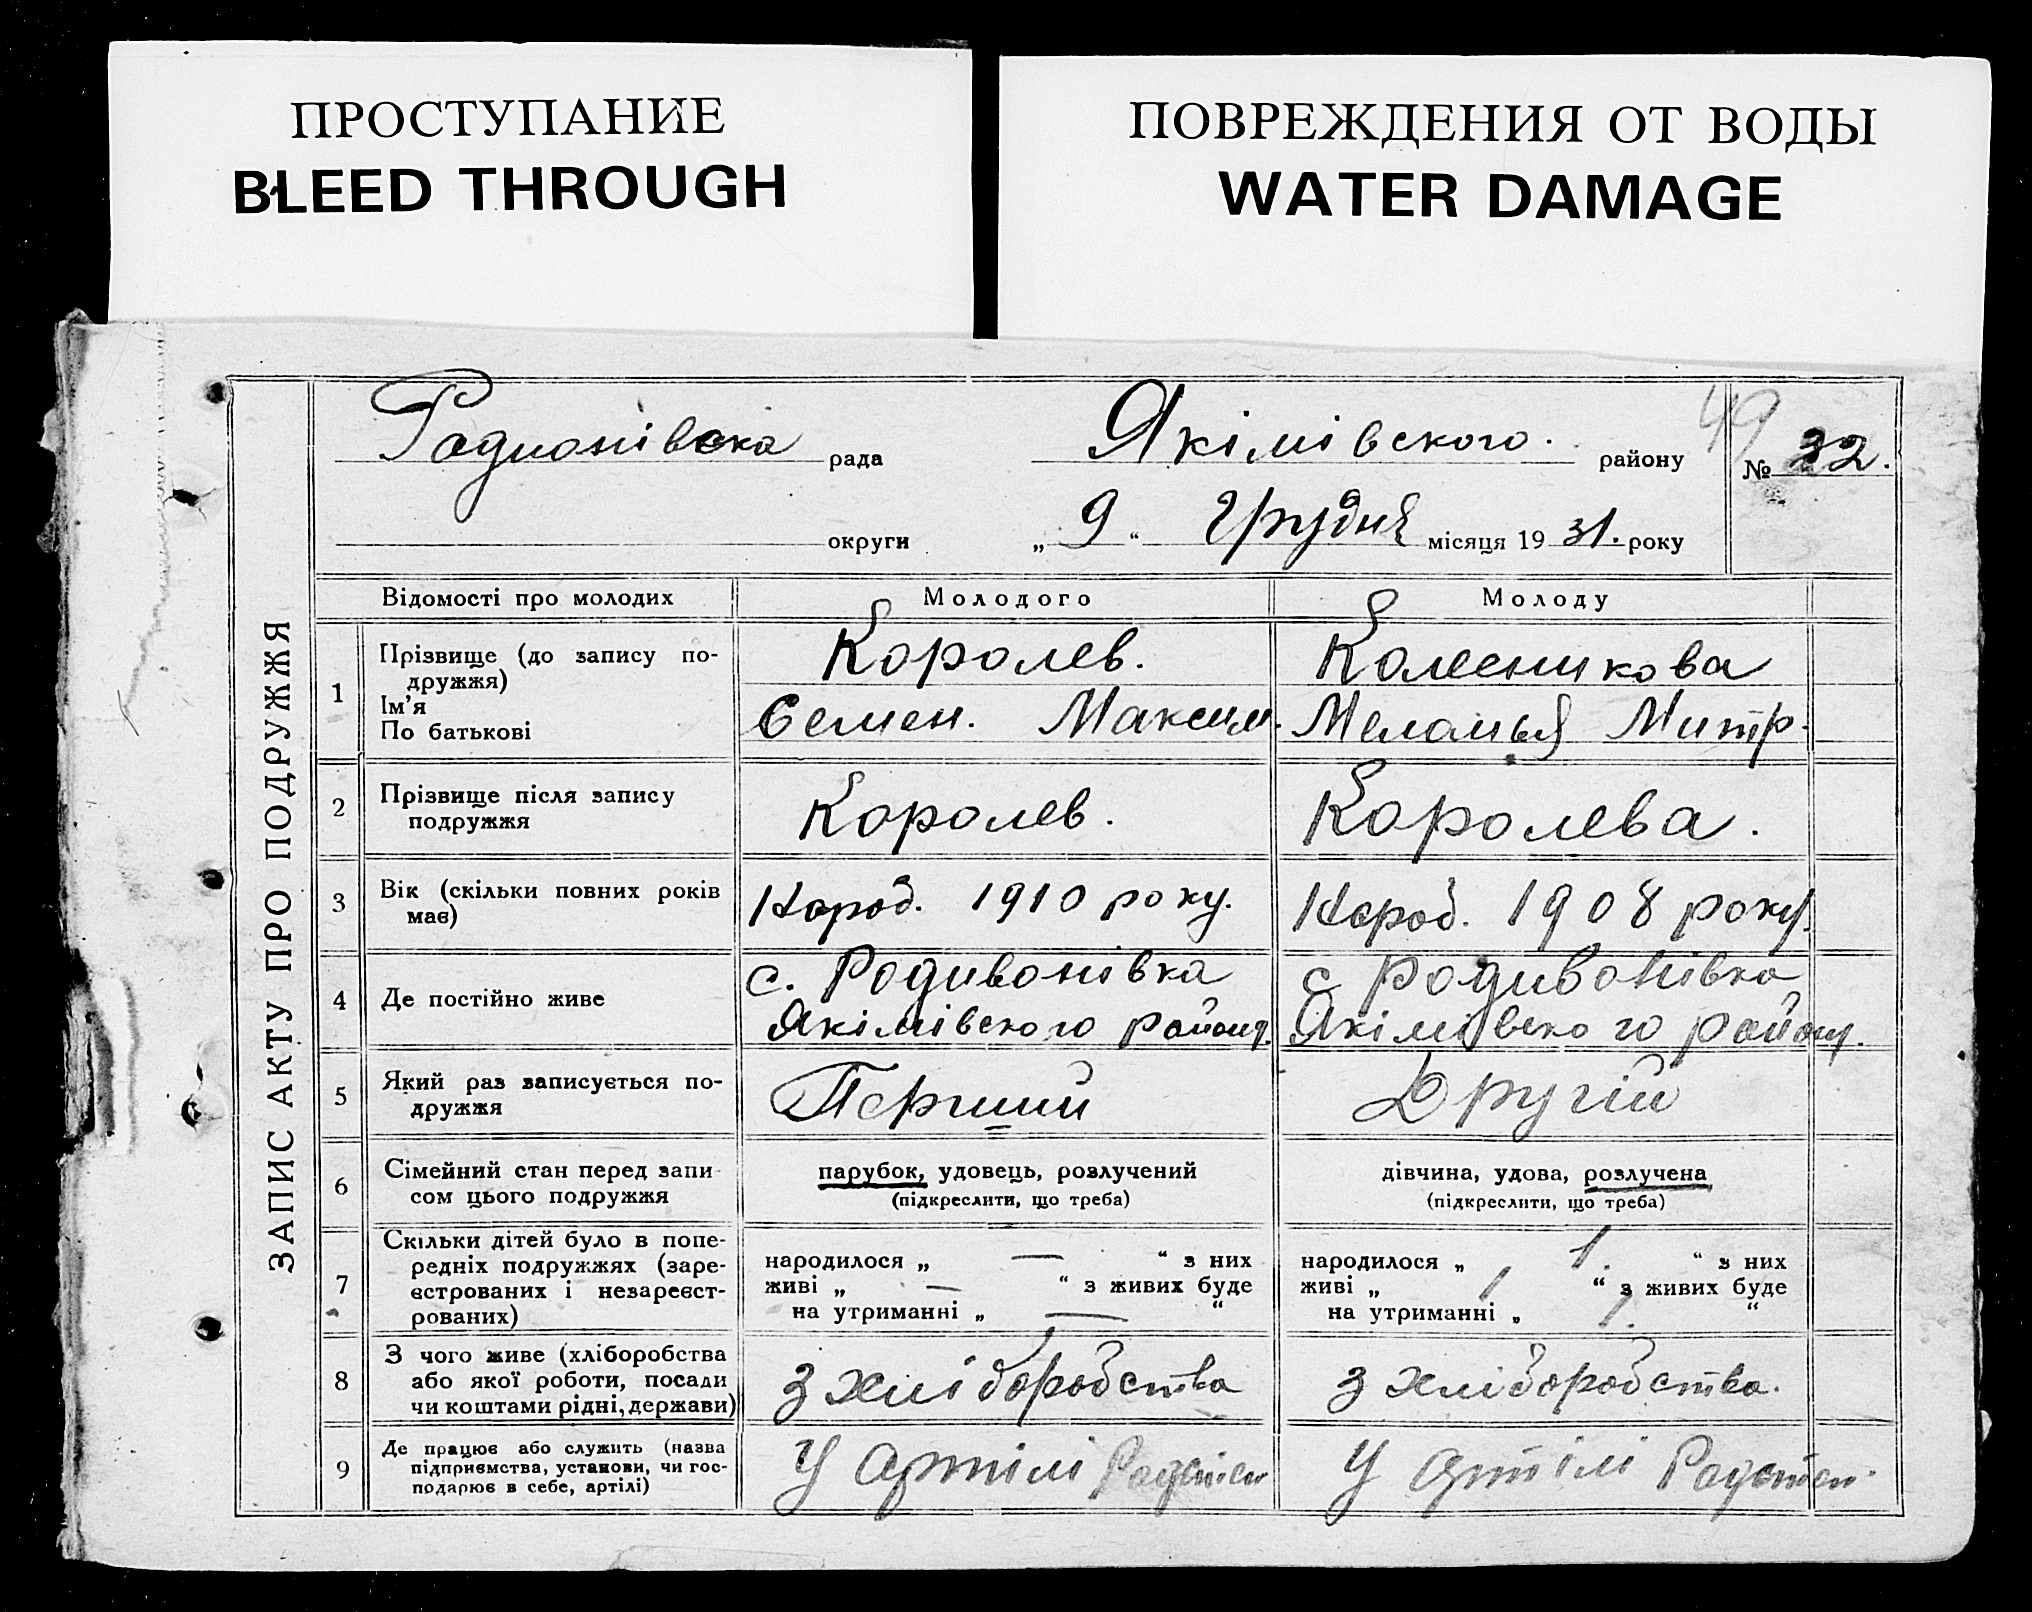 ПРОСТУПАНИЕ
BLEED THROUGH
ПОВРЕЖДЕНИЯ ОТ ВОДЫ
WATER DAMAGE
ЗАПИС АКТУ ПРО ПОДРУЖЖЯ
Родионівска рада Якімівского. району
49
№ 32.
округи „ 9 “ Грудня місяця 19 31. року
Відомості про молодих Молодого Молоду
1 Прізвище (до запису по-
дружжя)
Ім'я
По батькові
Королев. Колесникова
Семен. Максим. Меланья Митр.
2 Прізвище після запису
подружжя
Королев. Королева.
3 Вік (скільки повних років
має)
Народ. 1910 року. Народ. 1908 року.
4 Де постійно живе
с. Родивонівка с Родивонівка
Якімівского району. Якімівского району.
5 Який раз записується по-
дружжя
Перший Другій
6 Сімейний стан перед запи-
сом цього подружжя
парубок, удовець, розлучений дівчина, удова, розлучена
(підкреслити, що треба) (підкреслити, що треба)
7 Скільки дітей було в попе-
редніх подружжях (заре-
єстрованих і незареєст-
рованих)
народилося „ — “ з них народилося „ 1. “ з них
живі „ — “ з живих буде живі „ 1 “ з живих буде
на утриманні „ — “ на утриманні „ 1. “
8 З чого живе (хліборобства
або якої роботи, посади
чи коштами рідні, держави)
З хліборобства З хліборобства.
9 Де працює або служить (назва
підприємства, установи, чи гос-
подарює в себе, артілі)
У Артілі У Артілі